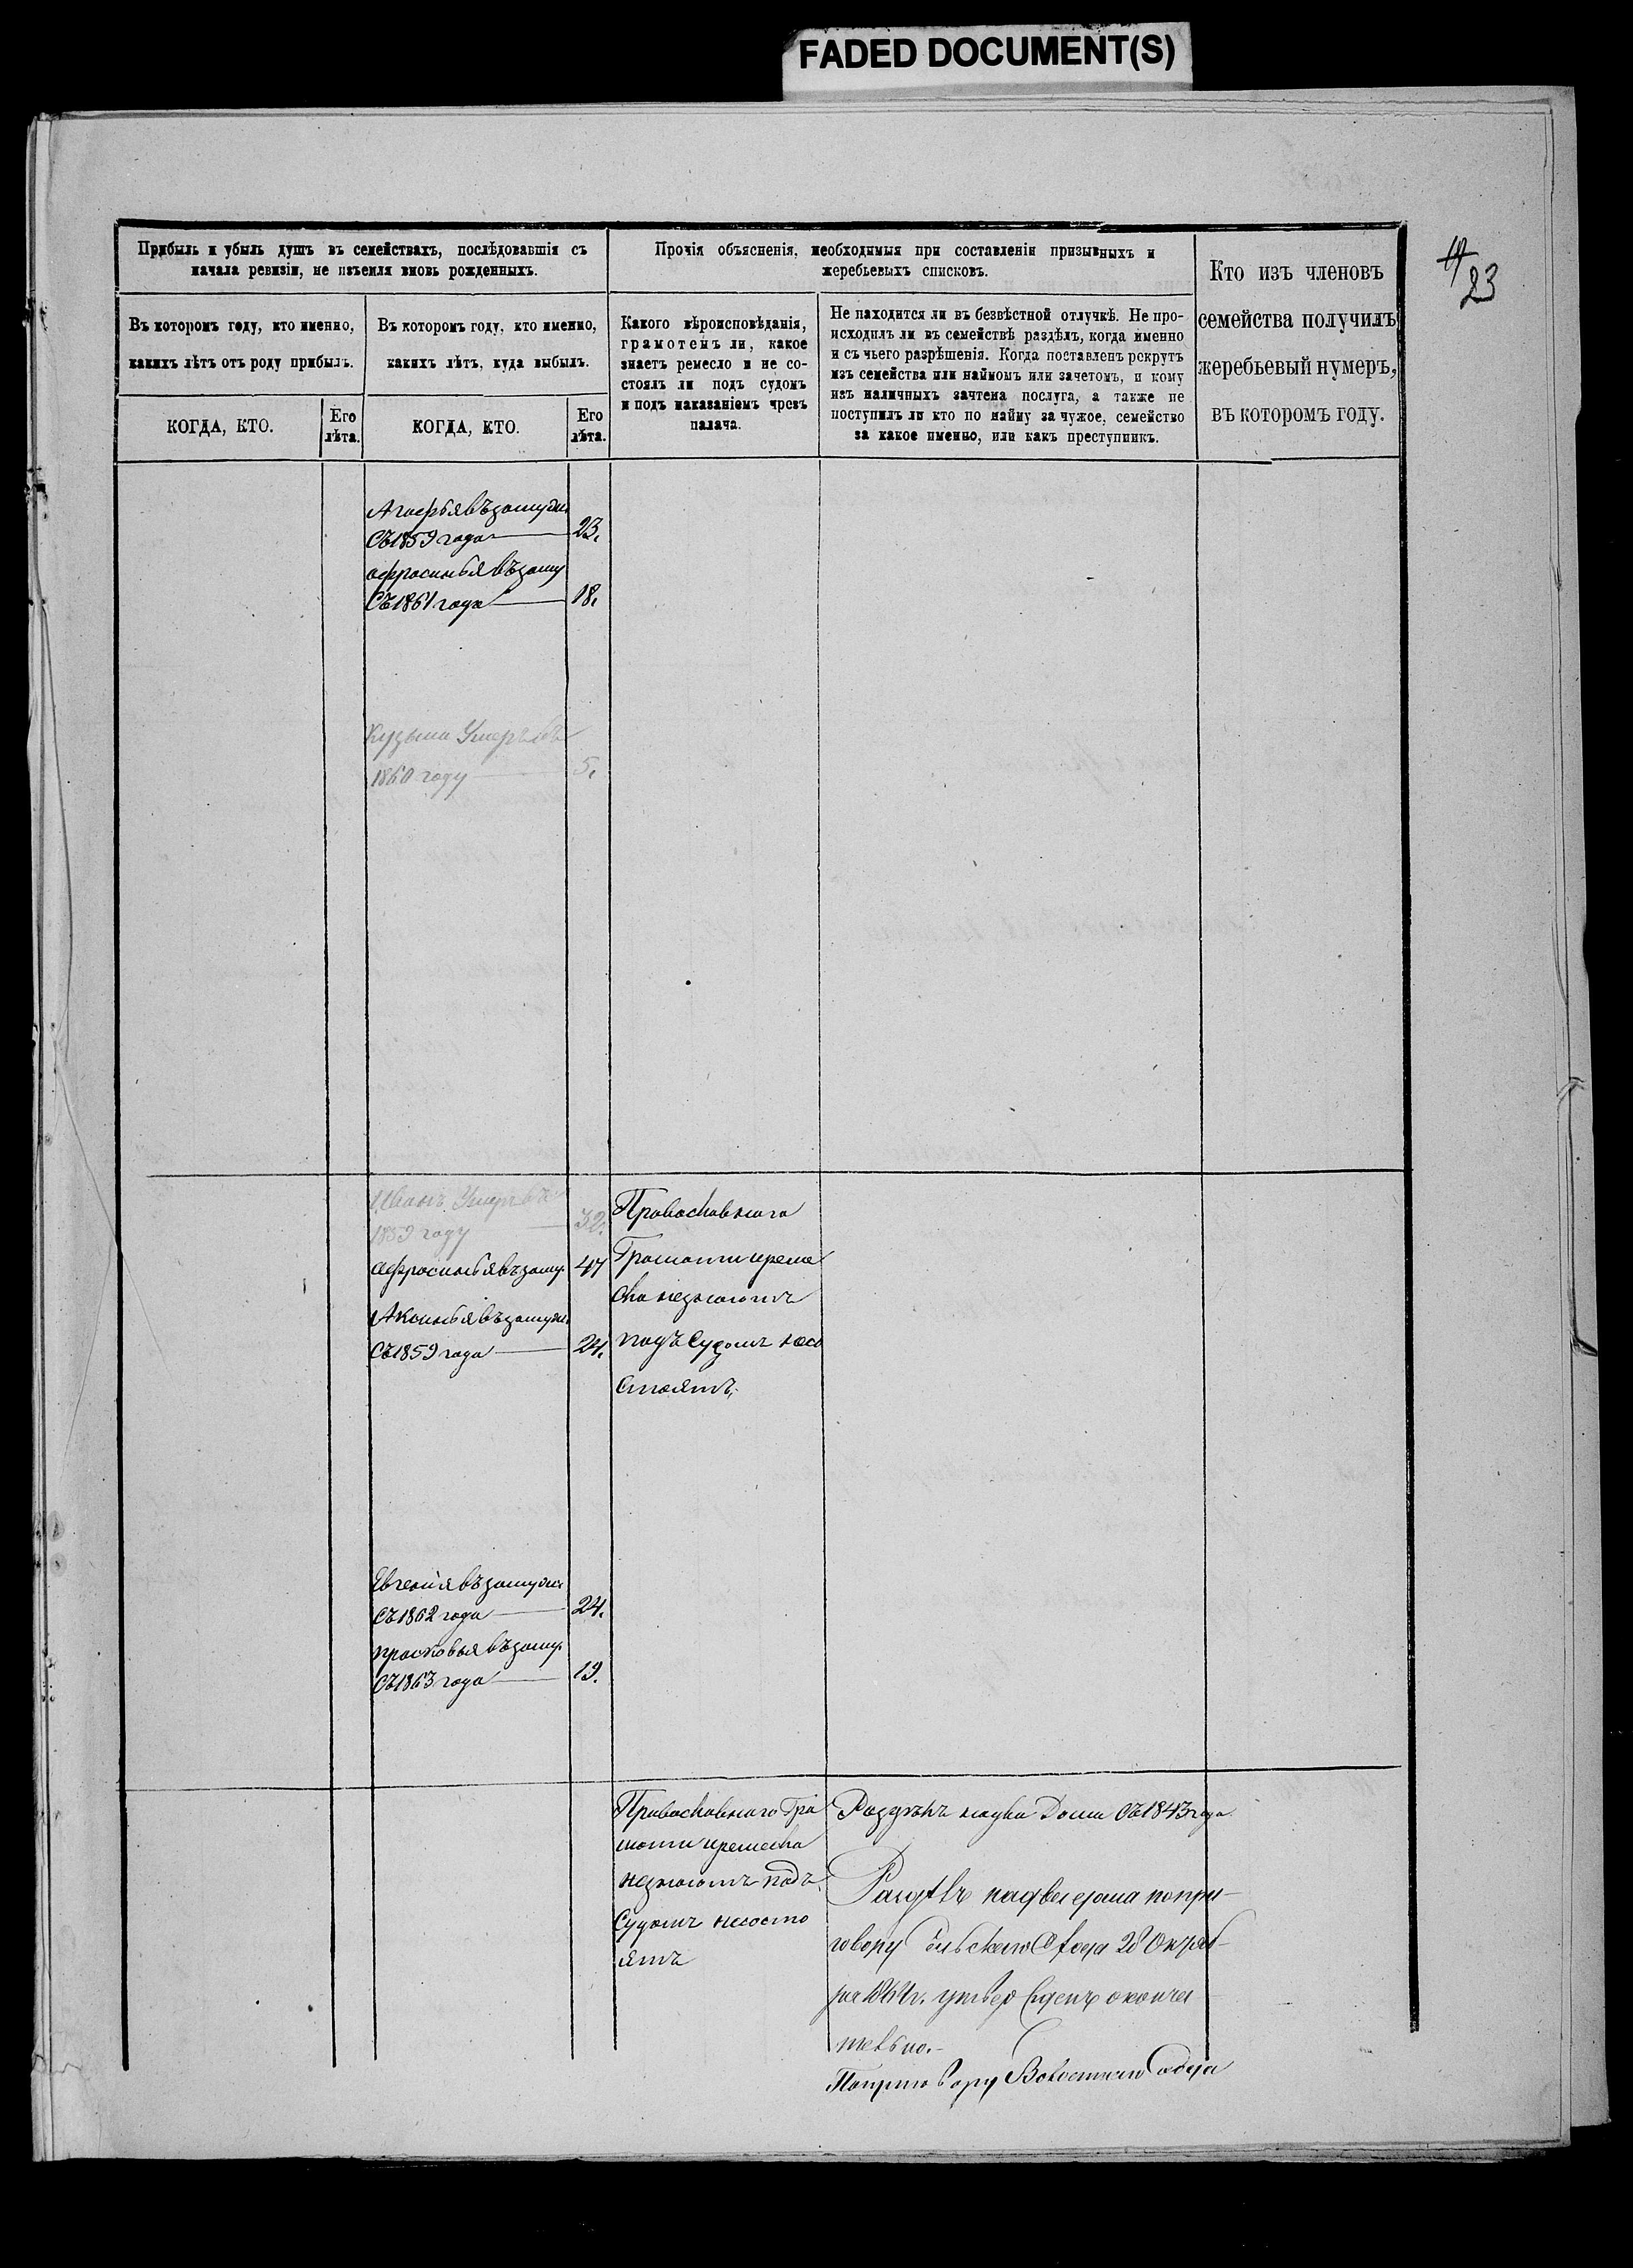 FADED DOCUMENT(S)
23
Прибыль и убыль душъ въ семействахъ, послѣдовавшія съ
начала ревизіи, не изъемля вновь рожденныхъ.
Прочія объясненія, необходимыя при составленіи призывныхъ и
жеребьевыхъ списковъ.
Кто изъ членовъ
семейства получилъ
жеребьевый нумеръ,
въ которомъ году.
Въ которомъ году, кто именно,
какихъ лѣтъ отъ роду прибылъ.
Въ которомъ году, кто именно,
какихъ лѣтъ, куда выбылъ.
Какого вѣроисповѣданія,
грамотенъ ли, какое
знаетъ ремесло и не со-
стоялъ ли подъ судомъ
и подъ наказаніемъ чрезъ
палача.
Не находится ли въ безвѣстной отлучкѣ. Не про-
исходилъ ли въ семействѣ раздѣлъ, когда именно
и съ чьего разрѣшенія. Когда поставленъ рекрутъ
изъ семейства или наймомъ или зачетомъ, и кому
изъ наличныхъ зачтена послуга, а также не
поступилъ ли кто по найму за чужое, семейство
за какое именно, или какъ преступникъ.
КОГДА, КТО.
Его
лѣта.
КОГДА, КТО.
Его
лѣта.
Агафья въ замужи
Съ 1859 года 23.
Афросинья въ заму
Съ 1861 года 18.
Кузьма Умеръ въ
1860 году 5.
Иванъ Умеръ въ
1859 году 32.
Афросинья въ заму. 47
Аксинья въ замужи.
Съ 1859 года 24.
Православнаго
Грамоти иреме
сла незнаютъ
подъ Судомъ несо
стоятъ.
Евгенія въ замужи
Съ 1862 года 24.
прасковья въ заму.
Съ 1863 года 19.
Православнаго Гра
моти иремесла
незнаютъ подъ
Судомъ несосто
ятъ
Раздѣлъ надва Дома Съ 1843 года
Раздѣлъ надва дома попри-
говору сельскаго Схода 28 Октяб-
ря г. утвер жденъ оконча
тельно.-
Поприговору Волостнаго Схода